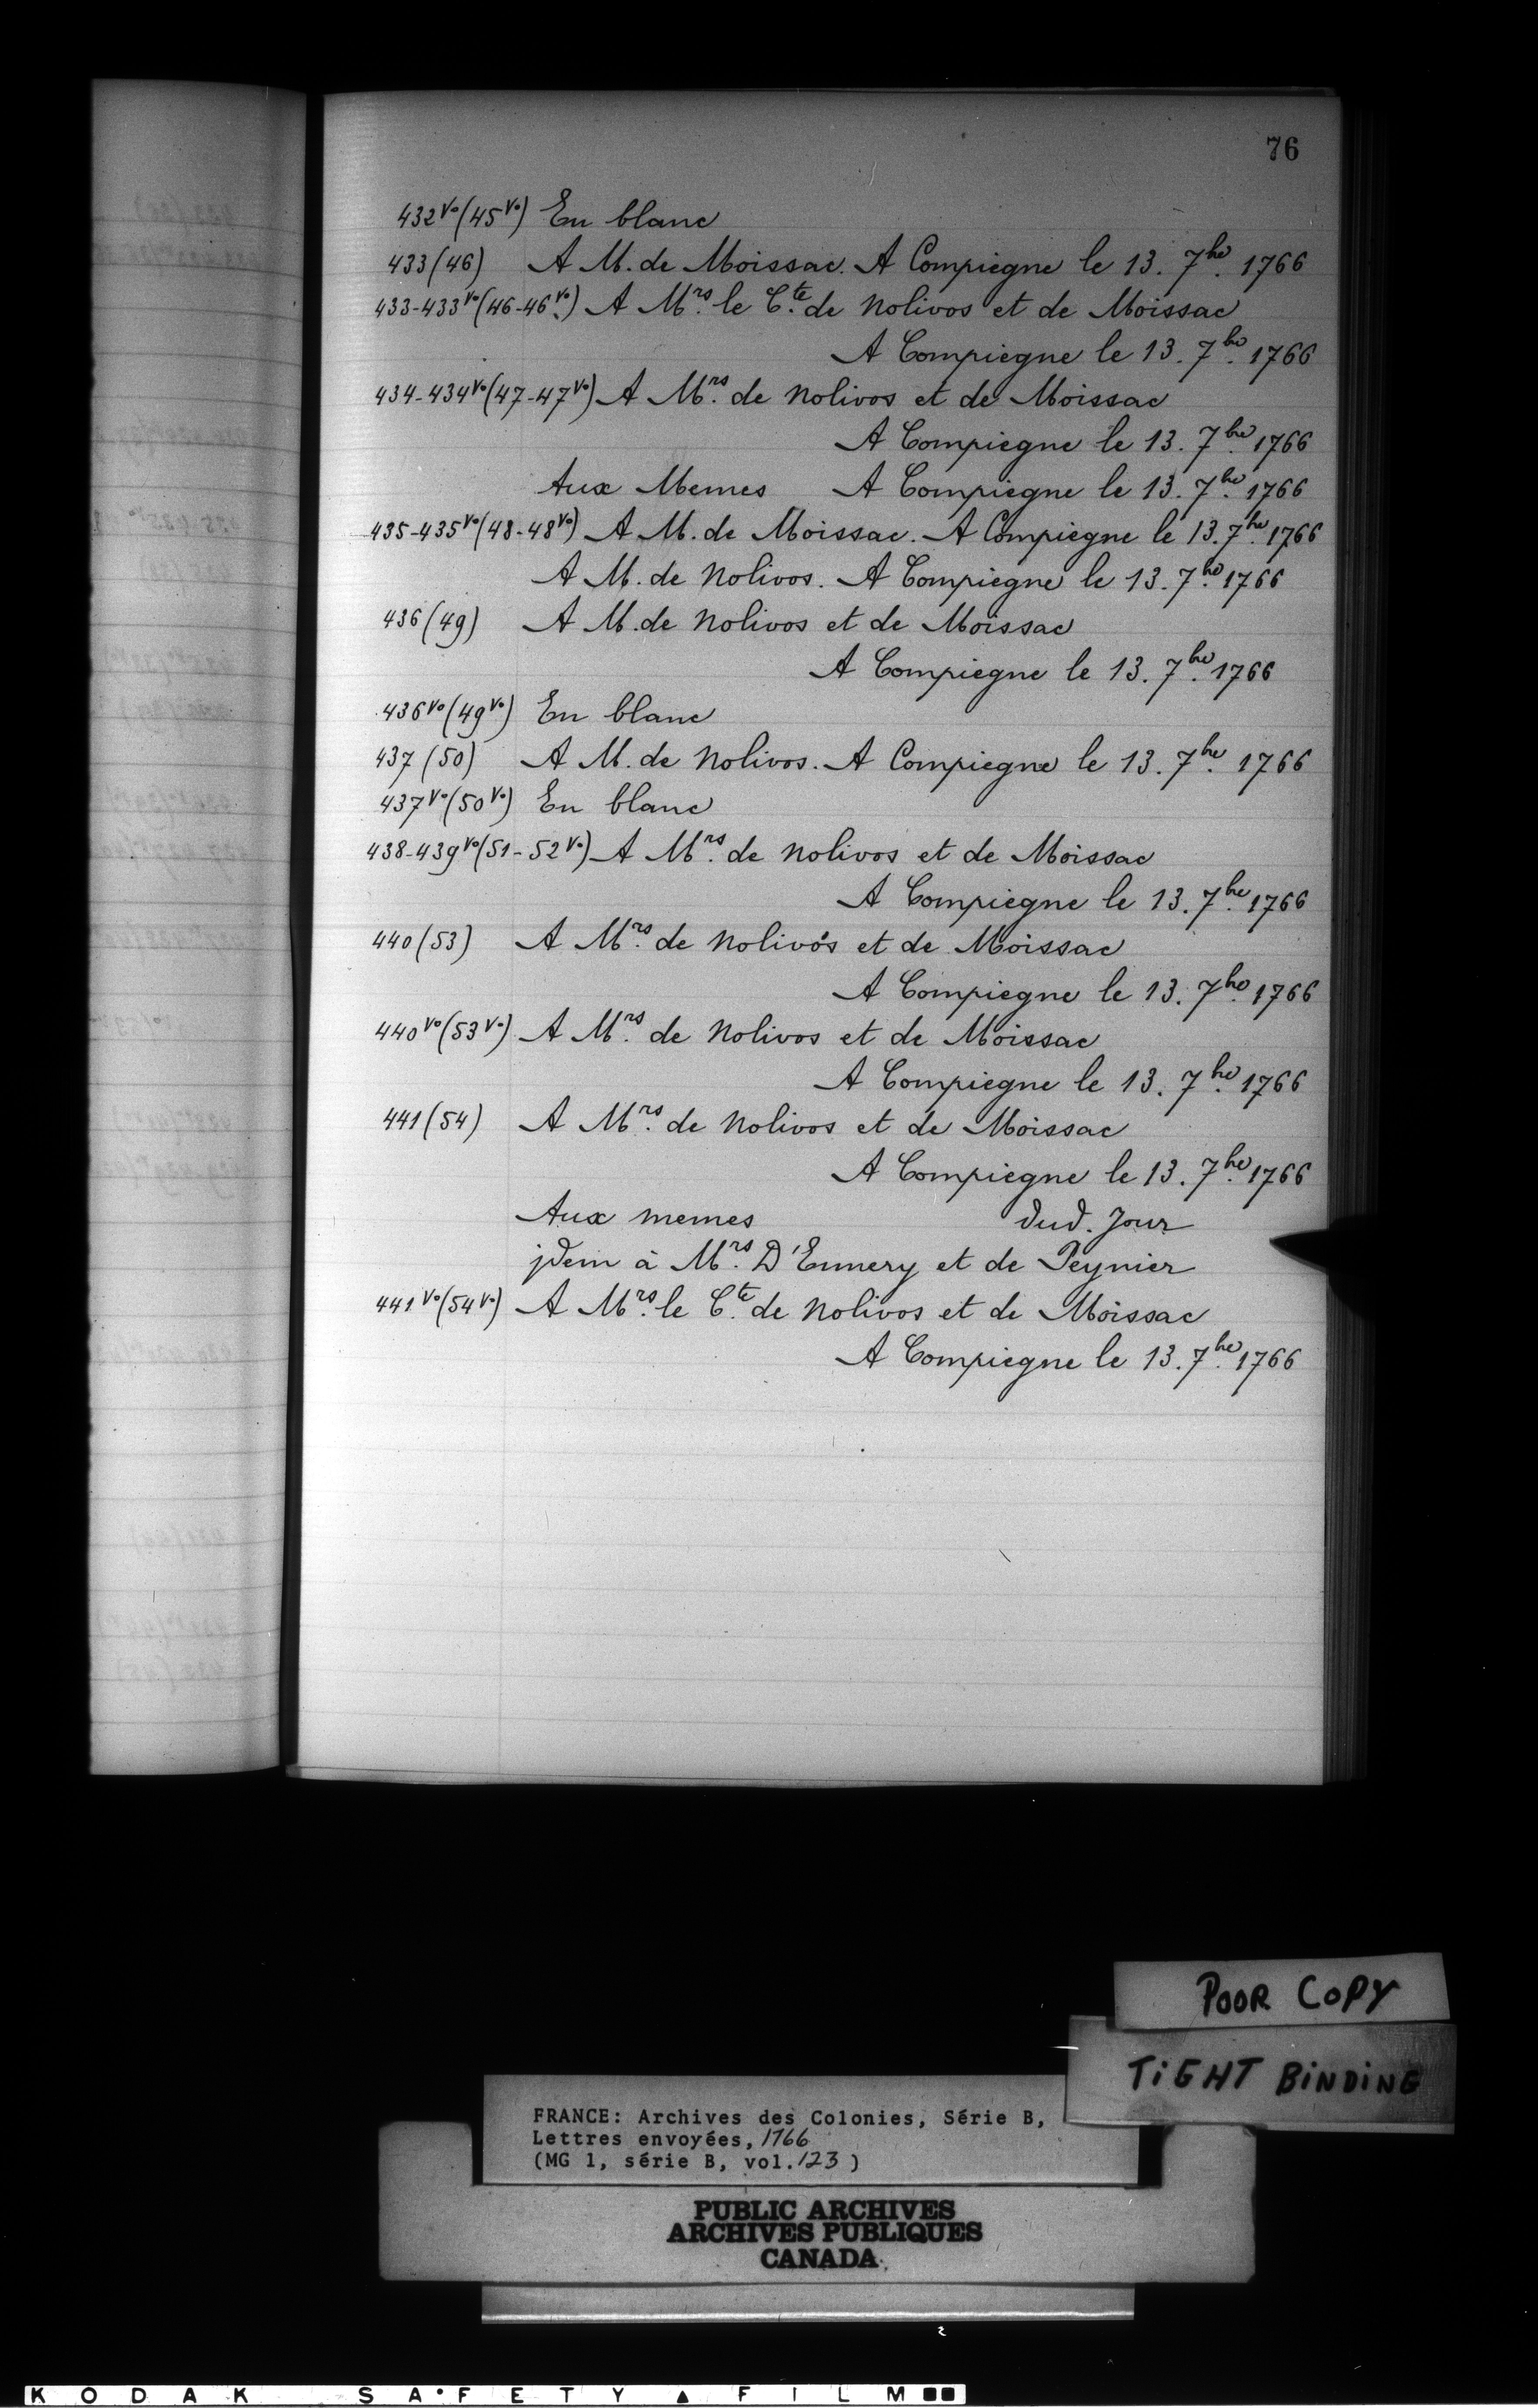 76
432 vo (45 vo) En blanc
433 (46) A M. de Moissac. A Compiegne le 13. 7bre. 1766
433-433 vo (46-46 vo) A Mrs. le Cte. de Nolivos et de Moissac
A Compiegne le 13. 7bre. 1766
434-434 vo (47-47 vo) A Mrs. de Nolivos et de Moissac
A Compiegne le 13. 7bre. 1766
Aux Memes A Compiegne le 13. 7bre. 1766
435-435 vo (48-48 vo) A M. de Moissac. A Compiegne le 13. 7bre. 1766
A M. de Nolivos. A Compiegne le 13. 7bre. 1766
436 (49) A M. de Nolivos et de Moissac
A Compiegne le 13. 7bre. 1766
436 vo (49 vo) En blanc
437 (50) A M. de Nolivos. A Compiegne le 13. 7bre. 1766
437 vo (50 vo) En blanc
438-439 vo (51-52 vo) A Mrs. de Nolivos et de Moissac
A Compiegne le 13. 7bre. 1766
440 (53) A Mrs. de Nolivos et de Moissac
A Compiegne le 13. 7bre. 1766
440 vo (53 vo) A Mrs. de Nolivos et de Moissac
A Compiegne le 13. 7bre. 1766
441 (54) A Mrs. de Nolivos et de Moissac
A Compiegne le 13. 7bre. 1766
Aux memes dud. Jour
jdem à Mrs. D'Ennery et de Peynier
441 vo (54 vo) A Mrs. le Cte. de Nolivos et de Moissac
A Compiegne le 13. 7bre. 1766
POOR COPY
TIGHT BINDING
FRANCE: Archives des Colonies, Série B,
Lettres envoyées, 1766
(MG 1, série B, vol. 123)
PUBLIC ARCHIVES
ARCHIVES PUBLIQUES
CANADA
KODAK SAFETY FILM